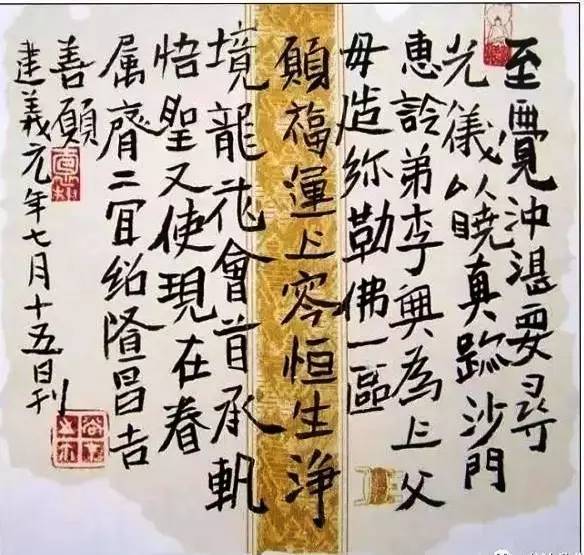 至覺沖湛要尋
光儀以曉真跡沙門
惠詮弟李興為上父
毋造弥勒佛一區
願福運上零恒生淨
境龍花會首承軌
悟聖又使現在眷
属齊二宜紹隆昌吉
善願
建義元年七月十五日刊